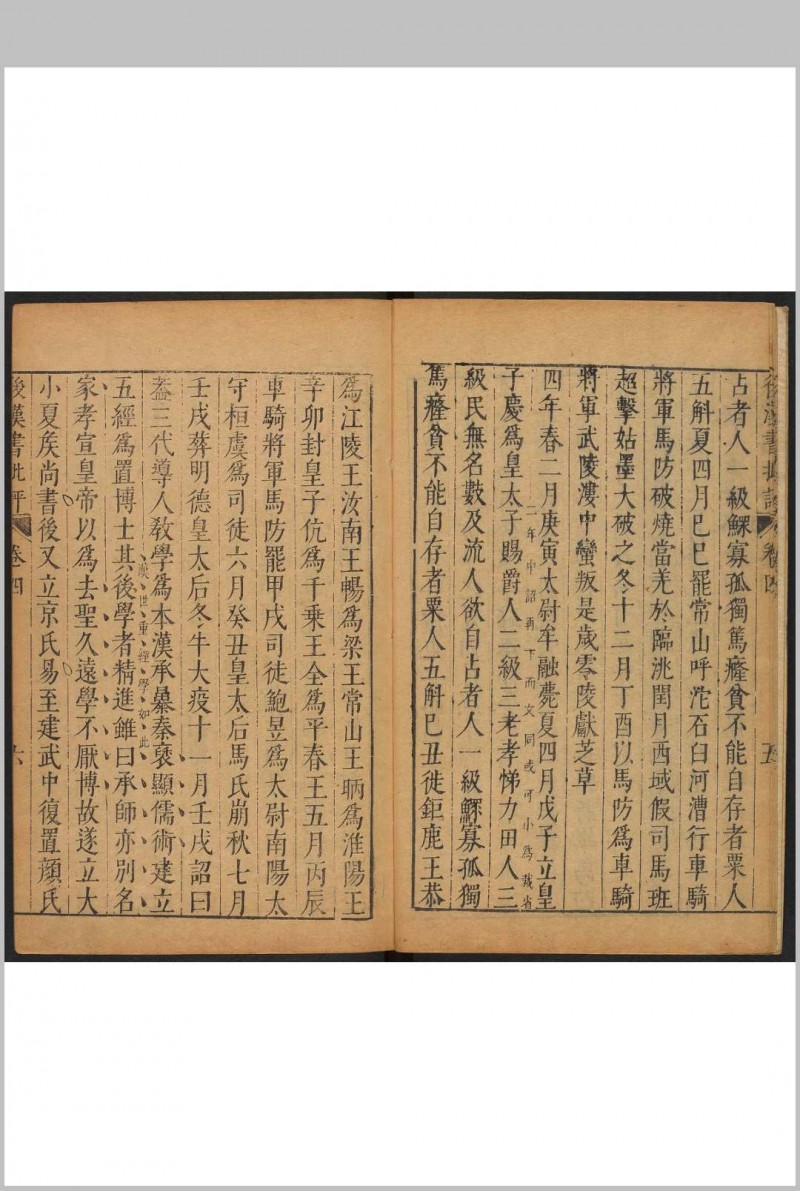 後漢書批評 卷四 五
占者人一級鰥寡孤獨篤癃貧不能自存者粟人
五斛夏四月巳巳罷常山呼沱石臼河漕行車騎
將軍馬防破燒當羌於臨洮閏月西域假司馬班
超擊姑墨大破之冬十二月丁酉以馬防爲車騎
將軍武陵漊中蠻叛是歲零陵獻芝草
四年春二月庚寅太尉牟融薨夏四月戊子立皇
二年中詔再下而文同或可小爲裁省
子慶爲皇太子賜爵人二級三老孝悌力田人三
級民無名數及流人欲自占者人一級鰥寡孤獨
篤癃貧不能自存者粟人五斛巳丑徙鉅鹿王恭
爲江陵王汝南王暢爲梁王常山王昞爲淮陽王
辛卯封皇子伉爲千乗王全爲平春王五月丙辰
車騎將軍馬防罷甲戌司徒鮑昱爲太尉南陽太
守桓虞爲司徒六月癸丑皇太后馬氏崩秋七月
壬戌葬明德皇太后冬牛大疫十一月壬戌詔曰
蓋三代導人敎學爲本漢承暴秦襃顯儒術建立
漢世重經學如此
五經爲置博士其後學者精進雖曰承師亦別名
家孝宣皇帝以爲去聖久遠學不厭博故遂立大
小夏矦尚書後又立京氏易至建武中復置顏氏
後漢書批評 卷四 六